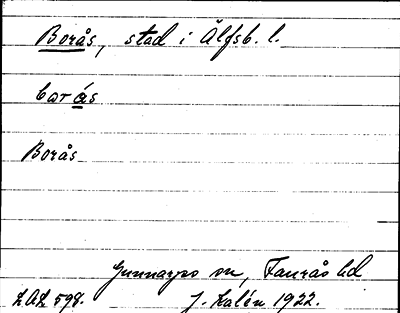 Borås, stad i Älfsb. l.
bɷrás
Borås
Gunnarps sn, Faurås hd
LAL 598. J. Kalén 1922.